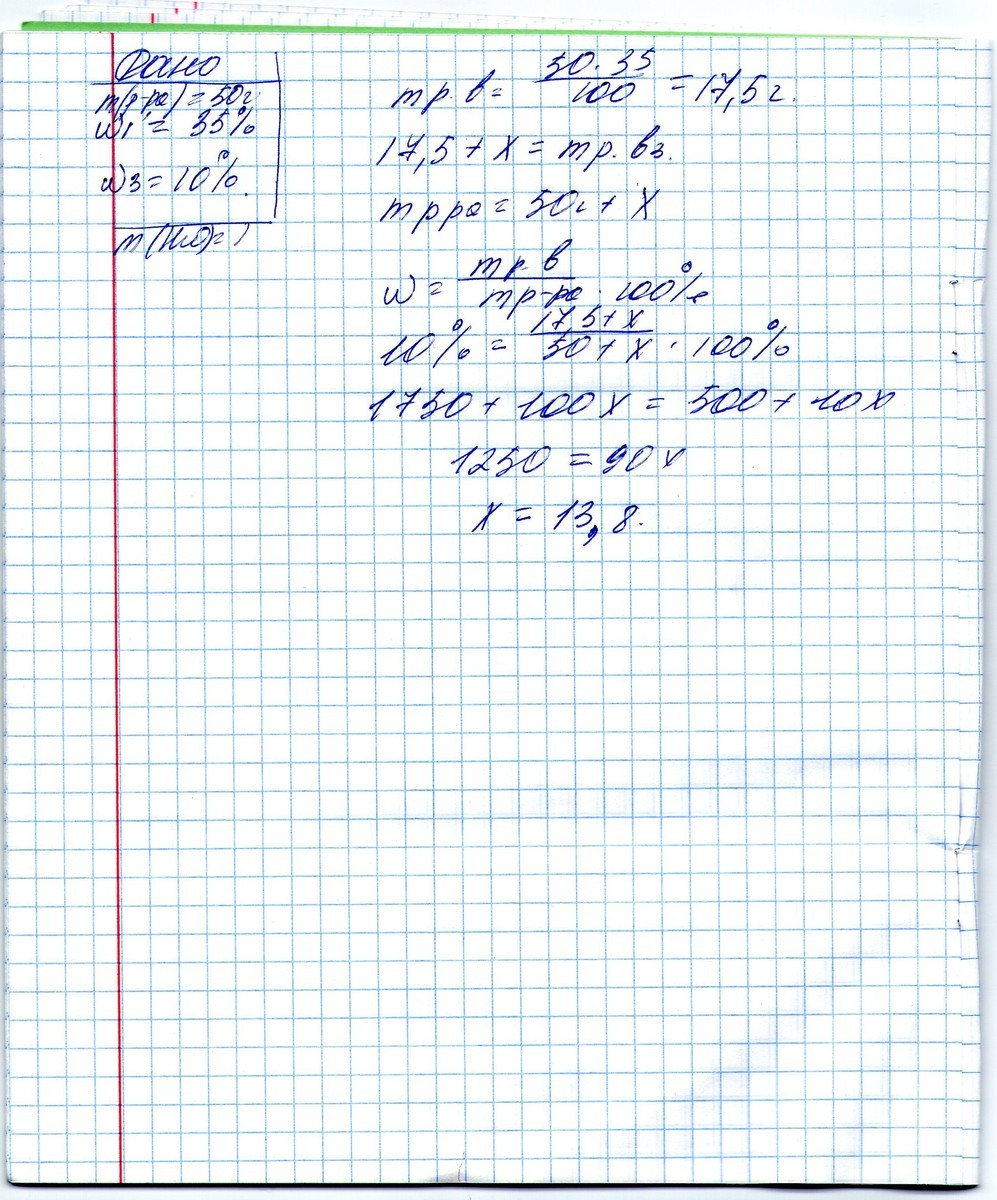 Дано
m(р-ра) = 50г
w1 = 35%
w3 = 10%.
m(H2O)=?
mр.в = 50·35/100 = 17,5г.
17,5 + x = mр.в3.
mрра = 50г + x
w = mр.в/mр-ра · 100%
10% = 17,5+x/50+x · 100%
1750 + 100x = 500 + 10x
1250 = 90x
x = 13,8.